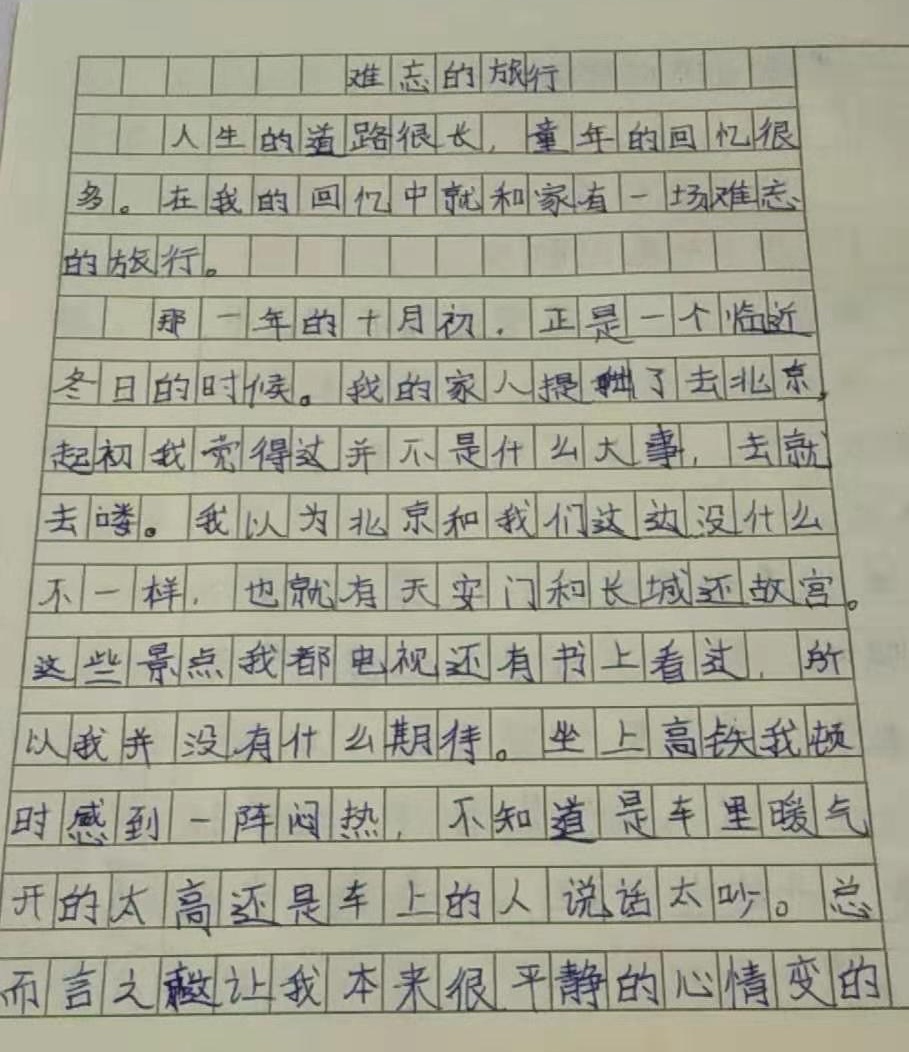 难忘的旅行
人生的道路很长,童年的回忆很
多。在我的回忆中就和家有一场难忘
的旅行。
那一年的十月初,正是一个临近
冬日的时候。我的家人提出了去北京,
起初我觉得这并不是什么大事,去就
去喽。我以为北京和我们这边没什么
不一样,也就有天安门和长城还故宫。
这些景点我都电视还有书上看过,所
以我并没有什么期待。坐上高铁我顿
时感到一阵闷热,不知道是车里暖气
开的太高还是车上的人说话太吵。总
而言之让我本来很平静的心情变的